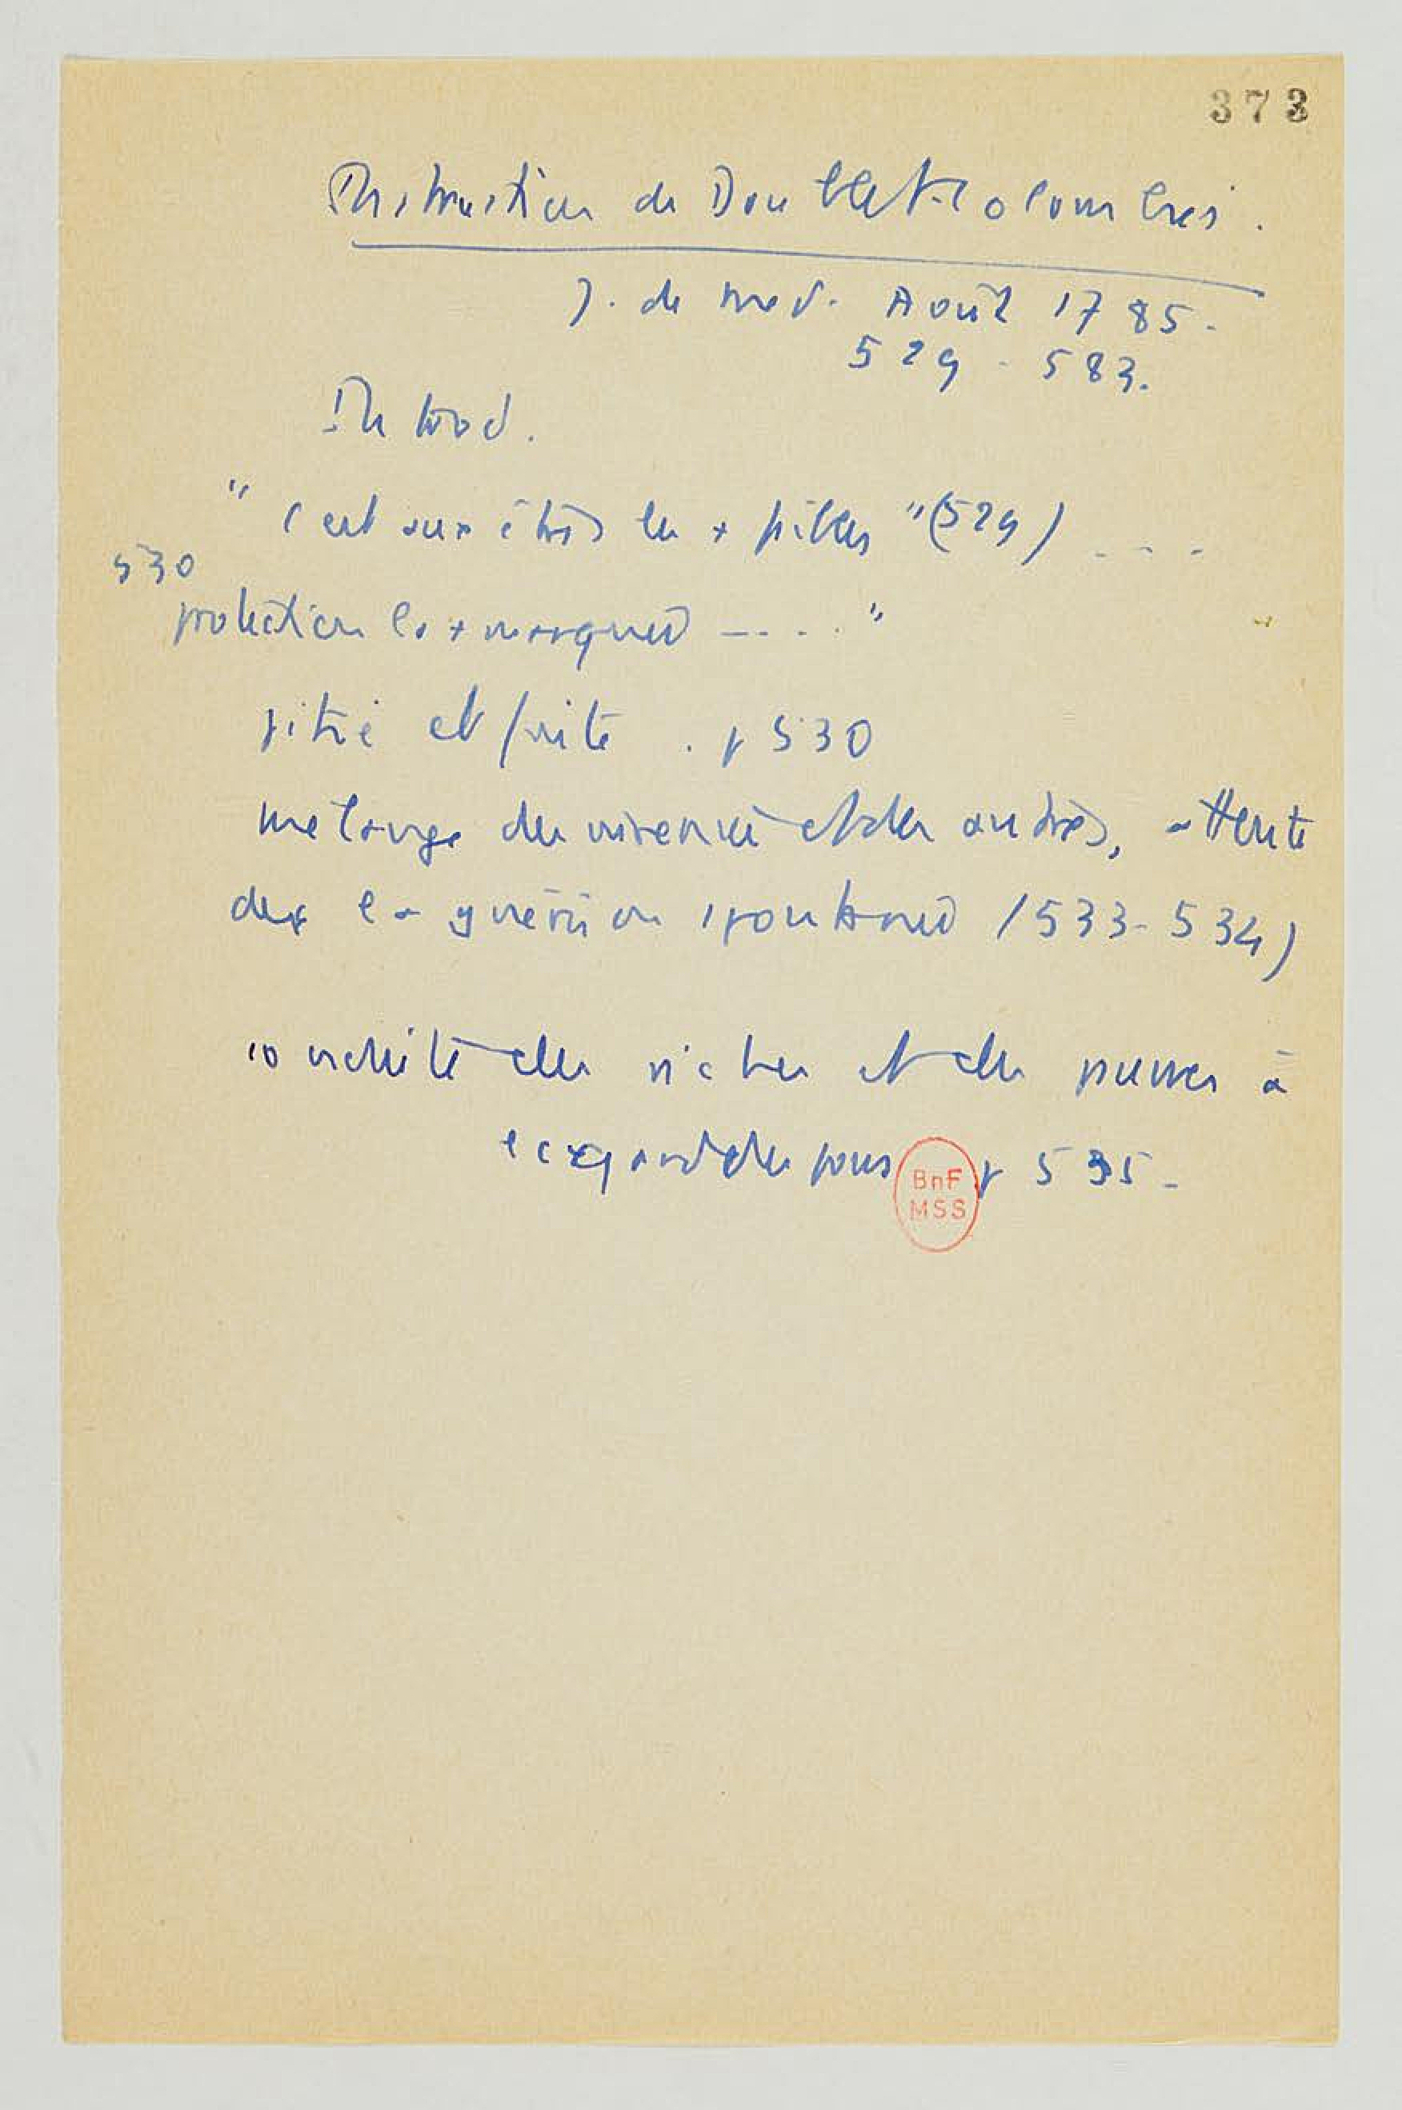 373
Instruction de Doublet-Colombier.
J. de med. Août 1785.
529-583.
Introd.
" C'est aux êtres les + faibles " (529) ....
530
protection la + marquée ...."
pitié et fuite . p 530
melange des vénériens et des autres, attente
de la guérison spontanée (533-534)
conduite des riches et des pauvres à
l'égard des fous p 535 -
BnF
MSS